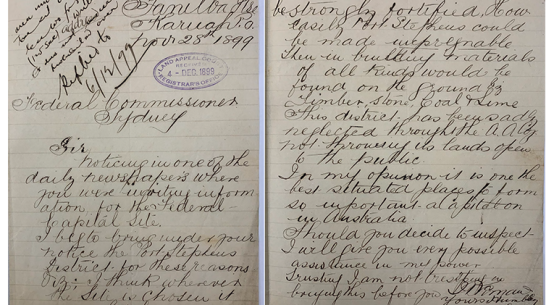 Karuah
Novr 28th 1899
Replied to
6/12/99
LAND APPEAL COURT
RECEIVED
4 - DEC. 1899
REGISTRAR'S OFFICE
Federal Commissioner
Sydney
Sir
Noticing in one of the
daily newspapers where
you were inviting inform
ation for the Federal
Capital Site.
I beg to bring under your
notice the Port Stephens
District for these reasons
Viz: I think wherever
the Site is chosen it
be strongly fortified. How
easily Port Stephens could
be made impregnable
Then in building materials
of all kinds would be
found on the ground
Timber, Stone, Coal & Lime
This district has been sadly
neglected through the A.A.Co
not throwing its lands open
to the public
In my opinion it is one the
best situated places to form
so important a
in Australia
Should you decide to inspect
I will give you every possible
assistance in my power
Trusting I am not
bringing this before you